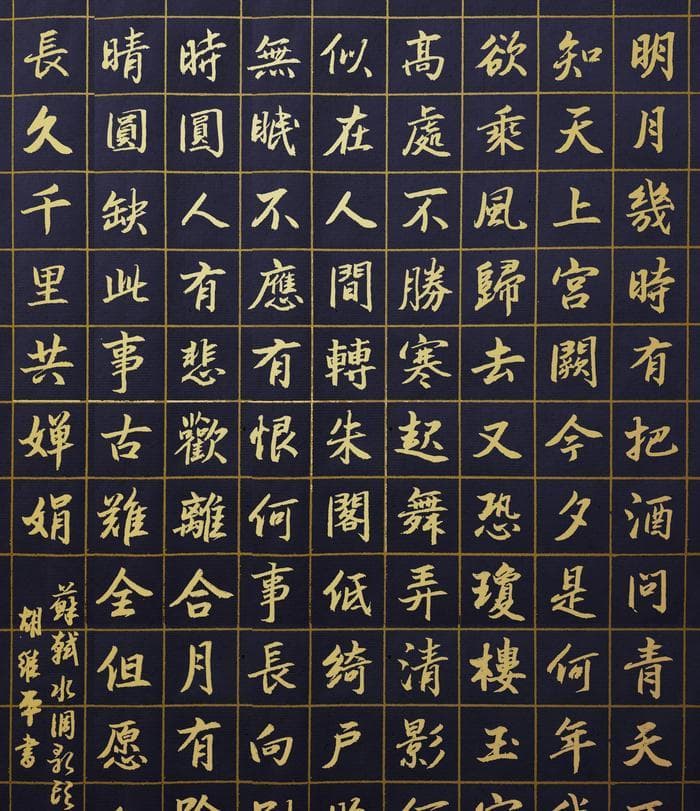 明月幾時有把酒問青天
知天上宮闕今夕是何年
欲乘風歸去又恐瓊樓玉
高處不勝寒起舞弄清影
似在人間轉朱閣低綺戶
無眠不應有恨何事長向
時圓人有悲歡離合月有
晴圓缺此事古難全但愿
長久千里共嬋娟
蘇軾水調歌頭
胡平書